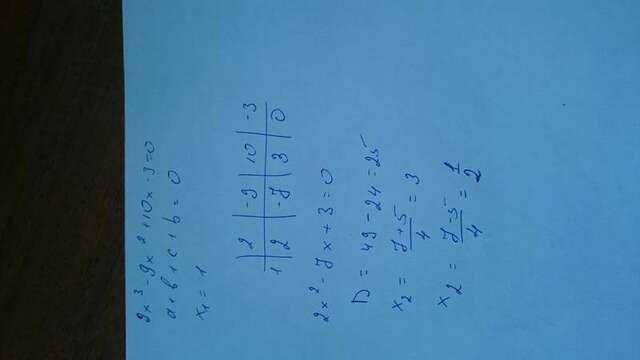 2x³ - 9x² + 10x - 3 = 0
a + b + c + b = 0
x₁ = 1
2 | -9 | 10 | -3
1 | 2 | -7 | 3 | 0
2x² - 7x + 3 = 0
D = 49 - 24 = 25
x₂ = (7 + 5)/4 = 3
x₂ = (7 - 5)/4 = 1/2